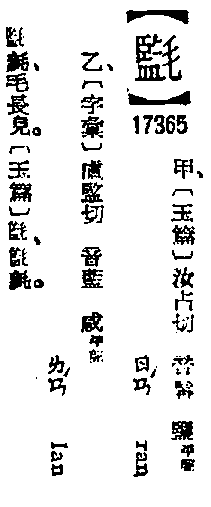 【㲯】
17365
甲、〔玉篇〕汝占切 音髥 鹽平聲
ㄖㄢˊ ran
乙、〔字彙〕盧監切 音藍 咸平聲
ㄌㄢˊ lan
㲯毿、毛長皃。〔玉篇〕㲯、㲯毿。